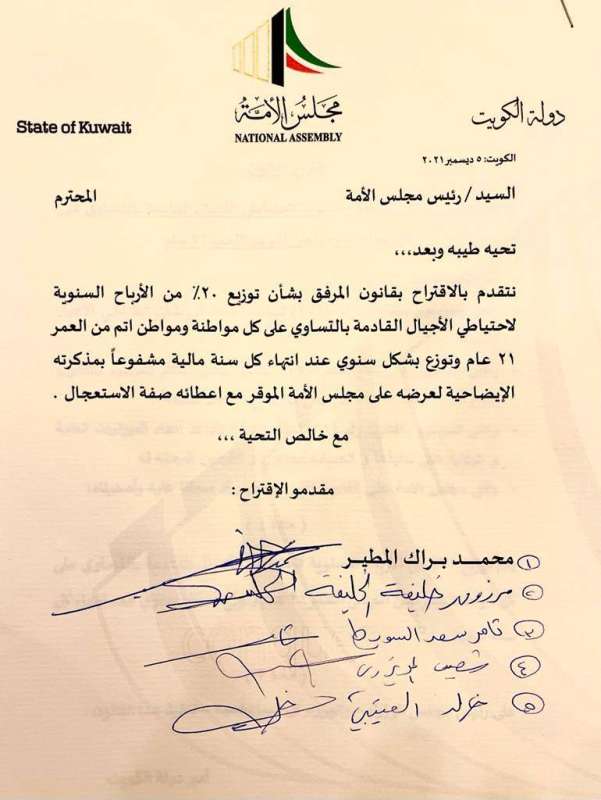 مجلس الأمة
NATIONAL ASSEMBLY
دولة الكويت
State of Kuwait
الكويت: ٥ ديسمبر ٢٠٢١
السيد / رئيس مجلس الأمة المحترم
تحيه طيبه وبعد،،،
نتقدم بالاقتراح بقانون المرفق بشأن توزيع ٢٠٪ من الأرباح السنوية
لاحتياطي الأجيال القادمة بالتساوي على كل مواطنة ومواطن اتم من العمر
٢١ عام وتوزع بشكل سنوي عند انتهاء كل سنة مالية مشفوعاً بمذكرته
الإيضاحية لعرضه على مجلس الأمة الموقر مع اعطائه صفة الاستعجال .
مع خالص التحية ،،،
مقدمو الإقتراح :
١ محمد براك المطير
٢ مرزوق خليفة الخليفة
٣ ثامر سعد السويط
٤ شعيب المويزري
٥ خالد العتيبي